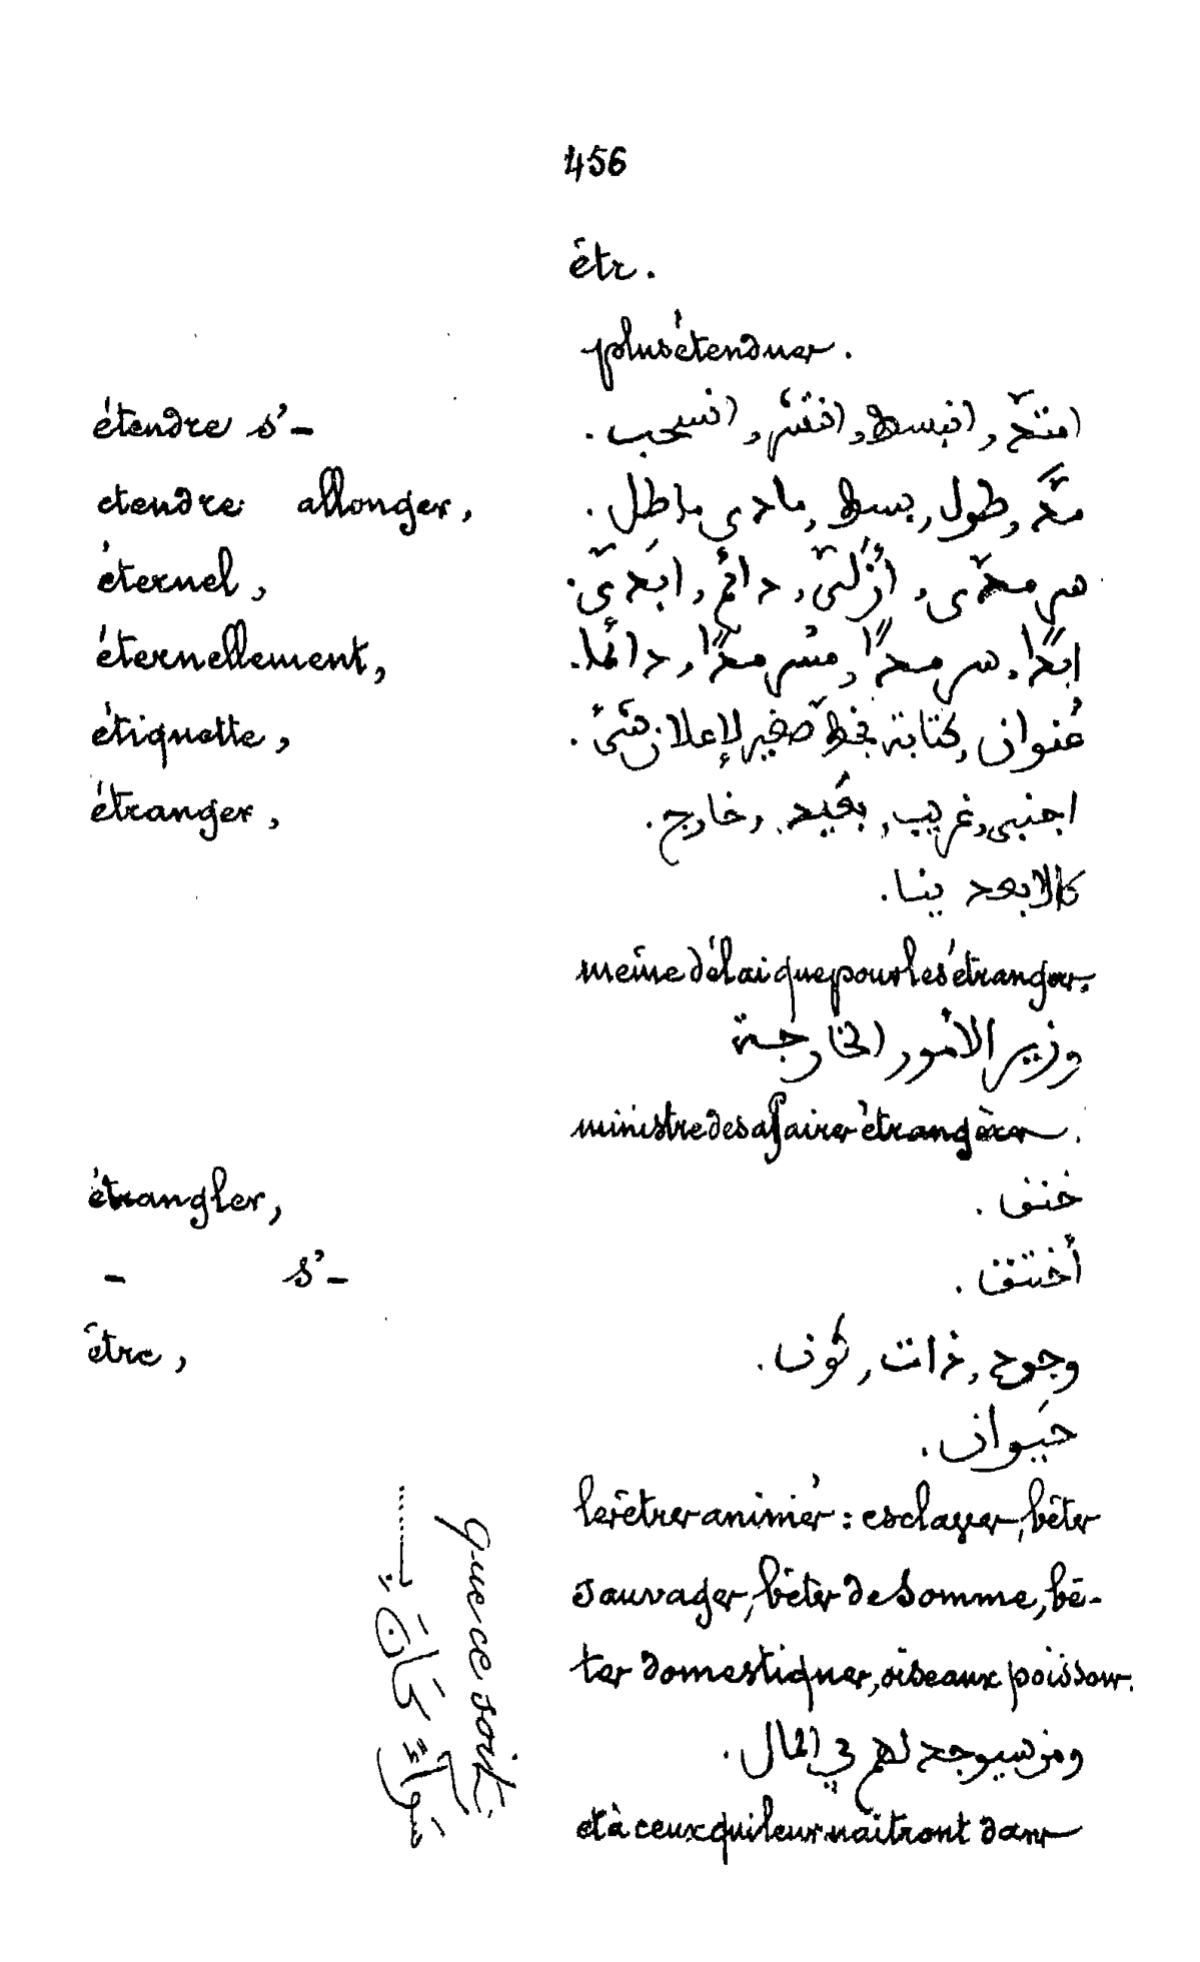 456
étr.
plus étendues.
étendre s'— امتدّ, انبسط, انتشر, انسحب.
etendre allonger, مدّ, طول, بسط, مادى ماطل.
éternel, سرمدىّ, أزَلىّ, دائم, ابَدىّ.
éternellement, ابدًا, سرمدًا, مسرمدًا, دائما.
étiquette, عُنوان, كتابة بخطّ صغير لإعلان شىء.
étranger, اجنبى, غريب, بعيد, خارج.
كالابعد ينا.
même délai que pour les étrangers.
وزير الأمور الخارجة
ministre des afaires étrangères.
étrangler, خنق.
— s'— أختنق.
être, وجود, ذات, كون.
حيوان.
les êtres animés: esclaves, bêtes
sauvages, bêtes de somme, bê-
tes domestiques, oiseaux poissons.
ومن سيوجد لهم في المال.
et à ceux qui leur naîtront dans
que ce soit
سَوَاءً كَانَ